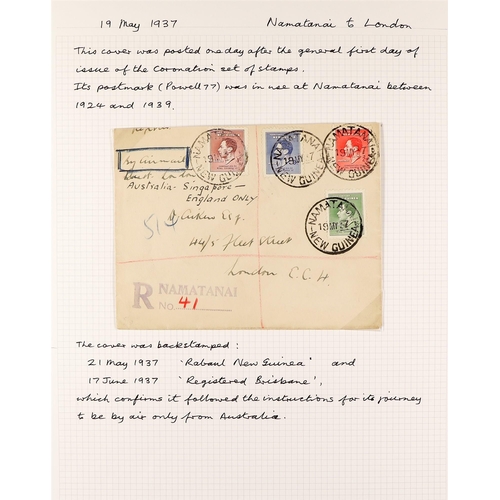 19 May 1937 Namatanai to London
This cover was posted one day after the general first day of
issue of the Coronation set of stamps.
Its postmark (Powell 77) was in use at Namatanai between
1924 and 1939.
By air mail
East London
Australia - Singapore -
England ONLY
44/5 Fleet Street
London E.C.4.
NAMATANAI
19 MY 37
NEW GUINEA
NAMATANAI
19 MY 37
NEW GUINEA
NAMATANAI
19 MY 37
NEW GUINEA
NAMATANAI
19 MY 37
NEW GUINEA
R NAMATANAI
No. 41
The cover was backstamped:
21 May 1937 'Rabaul New Guinea' and
17 June 1937 'Registered Brisbane',
which confirms it followed the instructions for its journey
to be by air only from Australia.